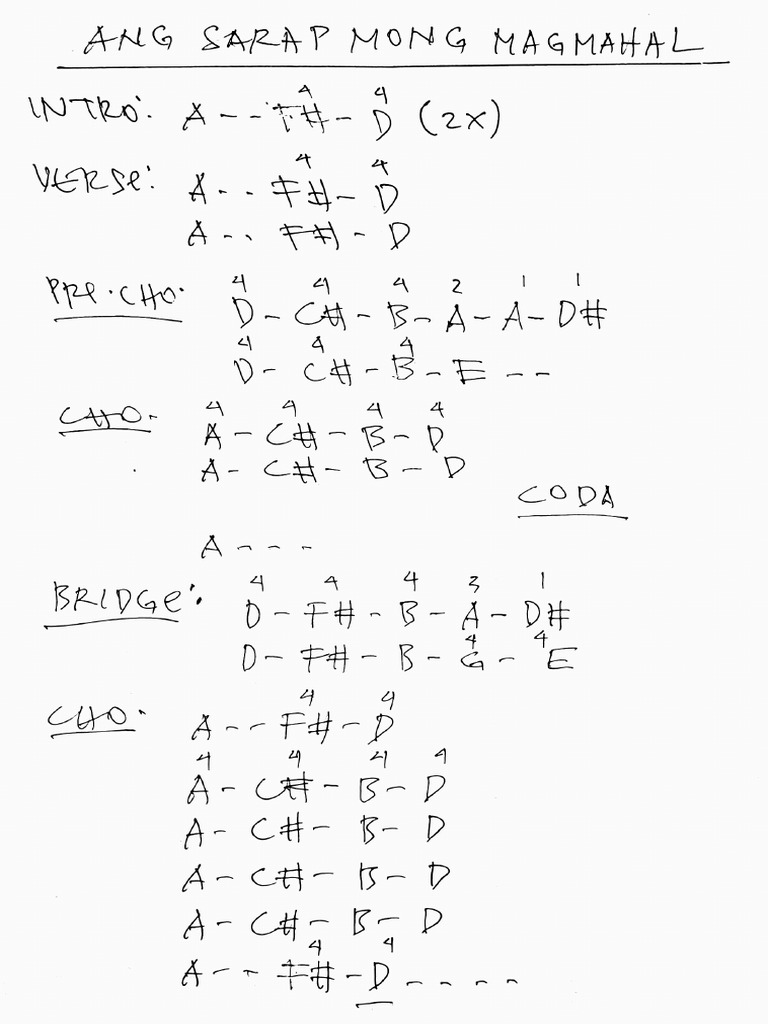 ANG SARAP MONG MAGMAHAL
4 4
INTRO: A - - F# - D (2X)
4 4
VERSE: A - - F# - D
A - - F# - D
4 4 4 2 1 1
PRE-CHO. D - C# - B - A - A - D#
4 4 4
D - C# - B - E - -
4 4 4 4
CHO. A - C# - B - D
A - C# - B - D
CODA
A - - -
4 4 4 3 1
BRIDGE: D - F# - B - A - D#
4 4
D - F# - B - G - E
4 4
CHO. A - - F# - D
4 4 4 4
A - C# - B - D
A - C# - B - D
A - C# - B - D
A - C# - B - D
4 4
A - - F# - D - - - -